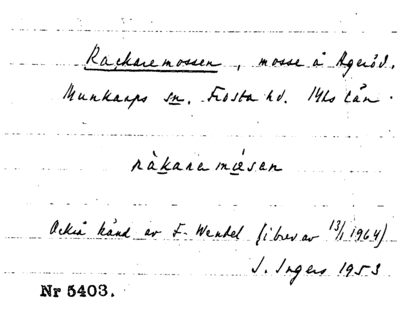 Rackaremossen, mosse å Ageröd.
Munkarps sn. Frosta hd. Mhs län.
råkaramåsen
Också känd av F. Wendel (i brev av 13/1 1964)
I. Ingers 1953
Nr 5403.